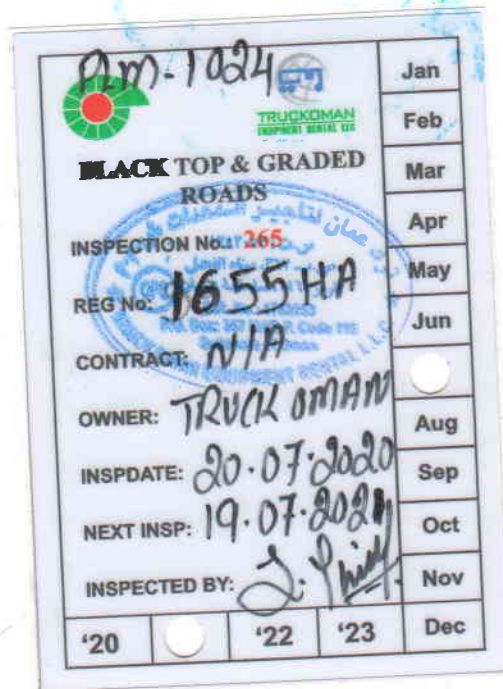 PLM-1024
TRUCKOMAN
EQUIPMENT RENTAL LLC
BLACK TOP & GRADED
ROADS
INSPECTION No.: 265
REG No: 1655 HA
CONTRACT: N/A
OWNER: TRUCK OMAN
INSPDATE: 20.07.2020
NEXT INSP: 19.07.2021
INSPECTED BY:
Jan
Feb
Mar
Apr
May
Jun
Aug
Sep
Oct
Nov
Dec
‘20
‘22
‘23